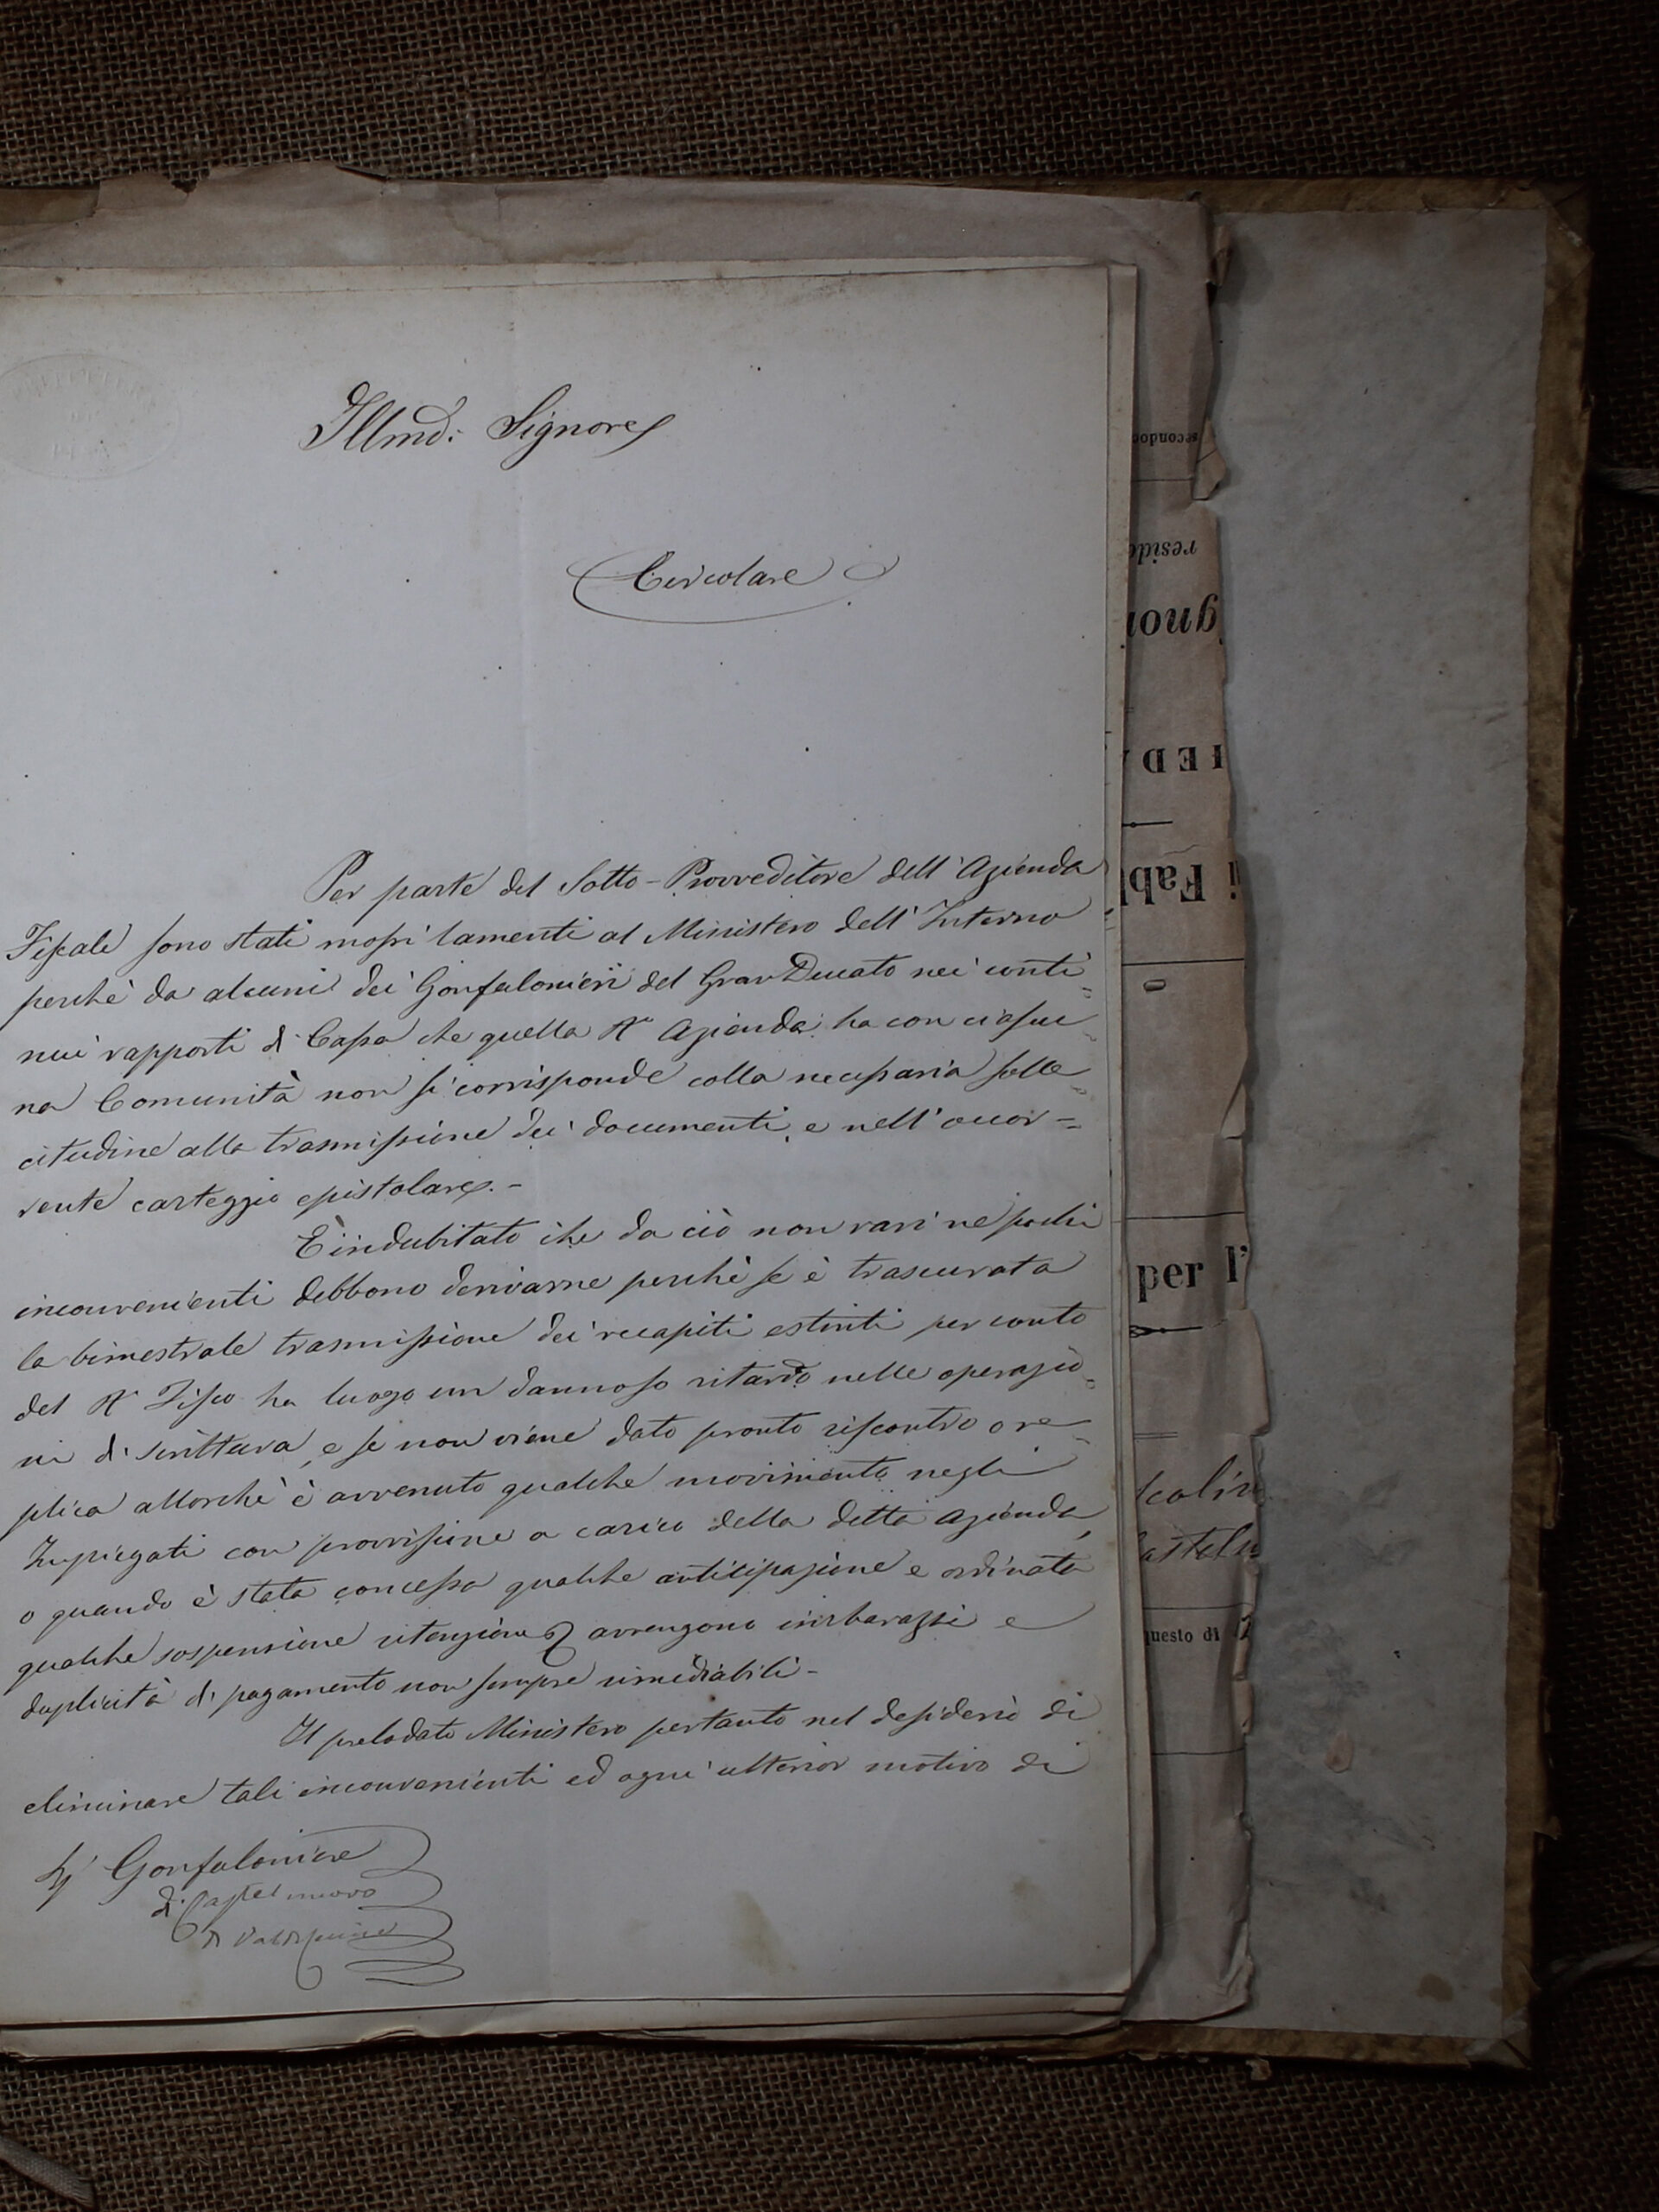 Illmo: Signore
Circolare
Per parte del Sotto-Provveditore dell'Azienda
Fiscale sono stati mossi lamenti al Ministero dell'Interno
perchè da alcuni dei Gonfalonieri del GranDucato nei conti=
nui rapporti di Cassa che quella R. Azienda ha con ciascu=
na Comunità non si corrisponde colla necessaria solle=
citudine alla trasmissione dei documenti, e nell'occor=
rente carteggio epistolare.-
È indubitato che da ciò non rari nè pochi
inconvenienti debbono derivarne perchè se è trascurata
la bimestrale trasmissione dei recapiti estinti per conto
del R. Fisco ha luogo un dannoso ritardo nelle operazio=
ni di scrittura, e se non viene dato pronto riscontro o re=
plica allorchè è avvenuto qualche movimento negli
Impiegati con provvisione a carico della detta Azienda,
o quando è stata concessa qualche anticipazione e ordinata
qualche sospensione ritenzione avvengono imbarazzi e
duplicità di pagamento non sempre rimediabili-
Il prelodato Ministero pertanto nel desiderio di
eliminare tali inconvenienti ed ogni ulterior motivo di
Gonfaloniere
di Castelnuovo
di Val di Cecina
secondo
reside
gnor
FEDA
i Fab
per l'
questo di